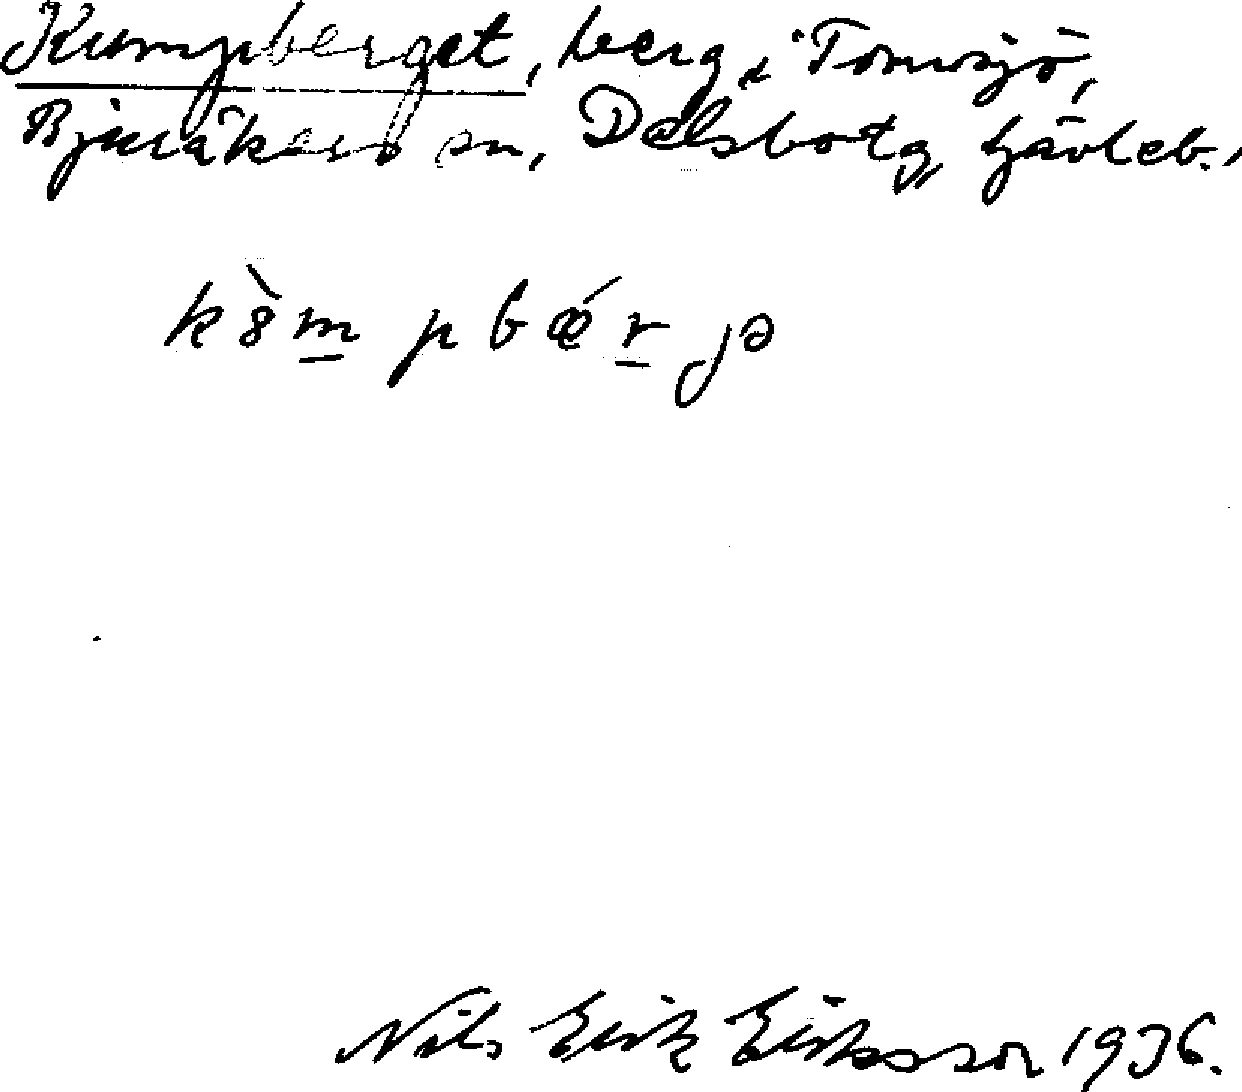 Kumpberget, berg, i Tomsjö,
Bjuråkers sn, Delsbo tg, Gävleb.,
k8̀m̲pbǽr̲jə
Nils Erik Eriksson 1936.